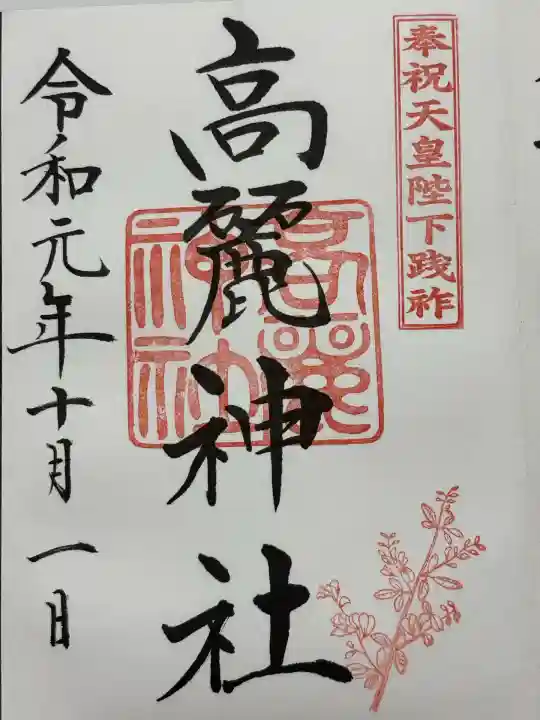 奉祝天皇陛下践祚
高麗神社
高麗神社
令和元年十月一日